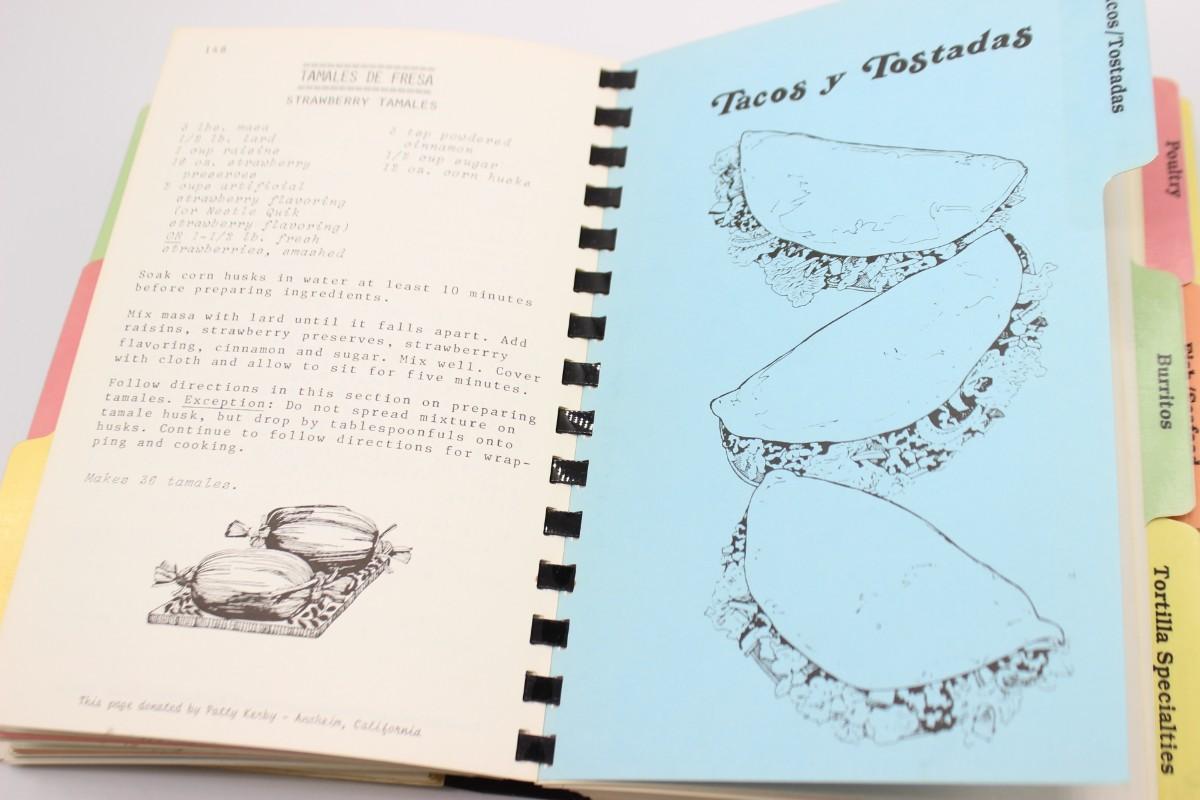 148
TAMALES DE FRESA
STRAWBERRY TAMALES
3 lbs. masa
1/2 lb. lard
1 cup raisins
10 oz. strawberry
preserves
2 cups artificial
strawberry flavoring
(or Nestle Quik
strawberry flavoring)
OR 1-1/2 lb. fresh
strawberries, smashed
2 tsp powdered
cinnamon
1/2 cup sugar
12 oz. corn husks
Soak corn husks in water at least 10 minutes
before preparing ingredients.
Mix masa with lard until it falls apart. Add
raisins, strawberry preserves, strawberrry
flavoring, cinnamon and sugar. Mix well. Cover
with cloth and allow to sit for five minutes.
Follow directions in this section on preparing
tamales. Exception: Do not spread mixture on
tamale husk, but drop by tablespoonfuls onto
husks. Continue to follow directions for wrap-
ping and cooking.
Makes 36 tamales.
This page donated by Patty Kerby - Anaheim, California
Tacos y Tostadas
cos/Tostadas
Poultry
Burritos
Tortilla Specialties